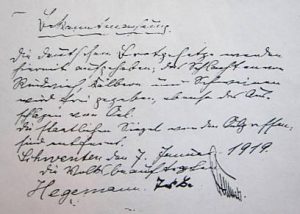 Bekanntmachung.
Die deutschen Ersatzgesetze werden
hiermit aufgehoben, das Schlachten von
Rindern, Kälbern und Schweinen
wird frei gegeben, ebenso das Aus-
schlagen von Oel.
Die staatlichen Siegel werden
sind entfernt.
Schwenten den 7. Januar 1919.
Die Volksbeauftragten
Hegemann.